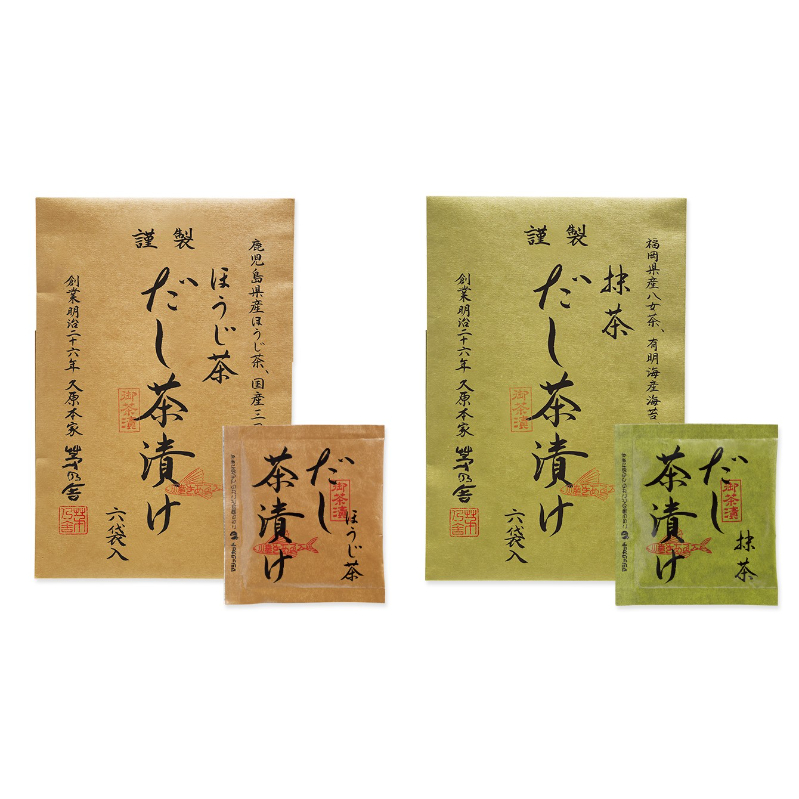 謹製
鹿児島県産ほうじ茶、国産三
ほうじ茶
だし茶漬け
御茶漬
六袋入
創業明治二十六年 久原本家 茅乃舎
茅乃舎
だし
茶漬け
御茶漬
ほうじ茶
謹製
福岡県産八女茶、有明海産海苔
抹茶
だし茶漬け
御茶漬
六袋入
創業明治二十六年 久原本家 茅乃舎
茅乃舎
だし
茶漬け
御茶漬
抹茶